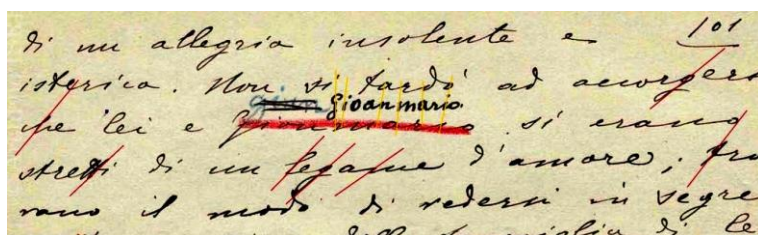 di un allegria insolente e 101
isterica. Non si tardò ad accorgers
che lei e Gioanmario si erano
stretti di un legame d'amore; tro
vano il modo di vedersi in segre